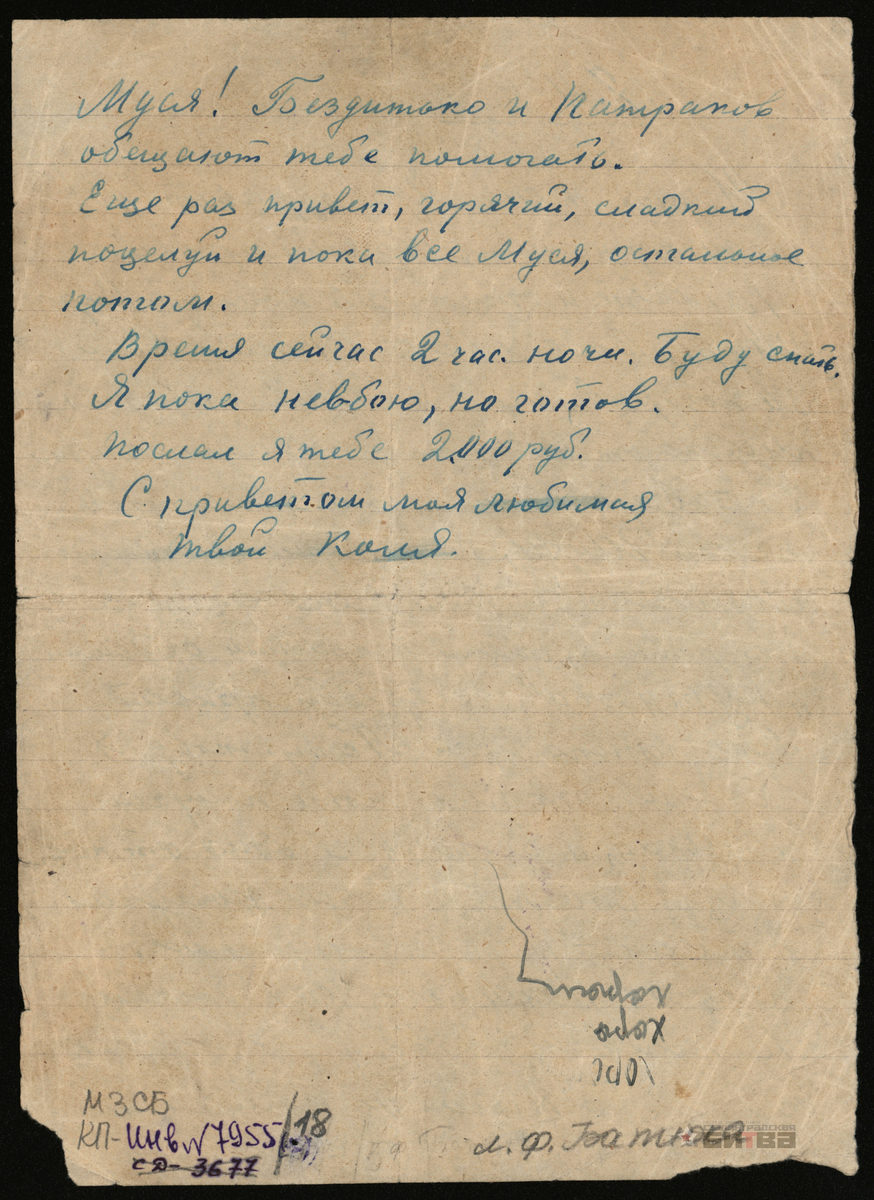 Муся! Бездитько и Патраков
обещают тебе помогать.
Еще раз привет, горячий, сладкий
поцелуй и пока все Муся, остальное
потом.
Время сейчас 2 час. ночи. Буду спать.
Я пока не в бою, но готов.
Послал я тебе 2.000 руб.
С приветом моя любимая
твой Коля.
хорош
хоро
хорс
МЗСБ
КП-Инв № 7955/18
СД- 3677
л. ф. Батюка
СТАЛИНГРАДСКАЯ
БИТВА